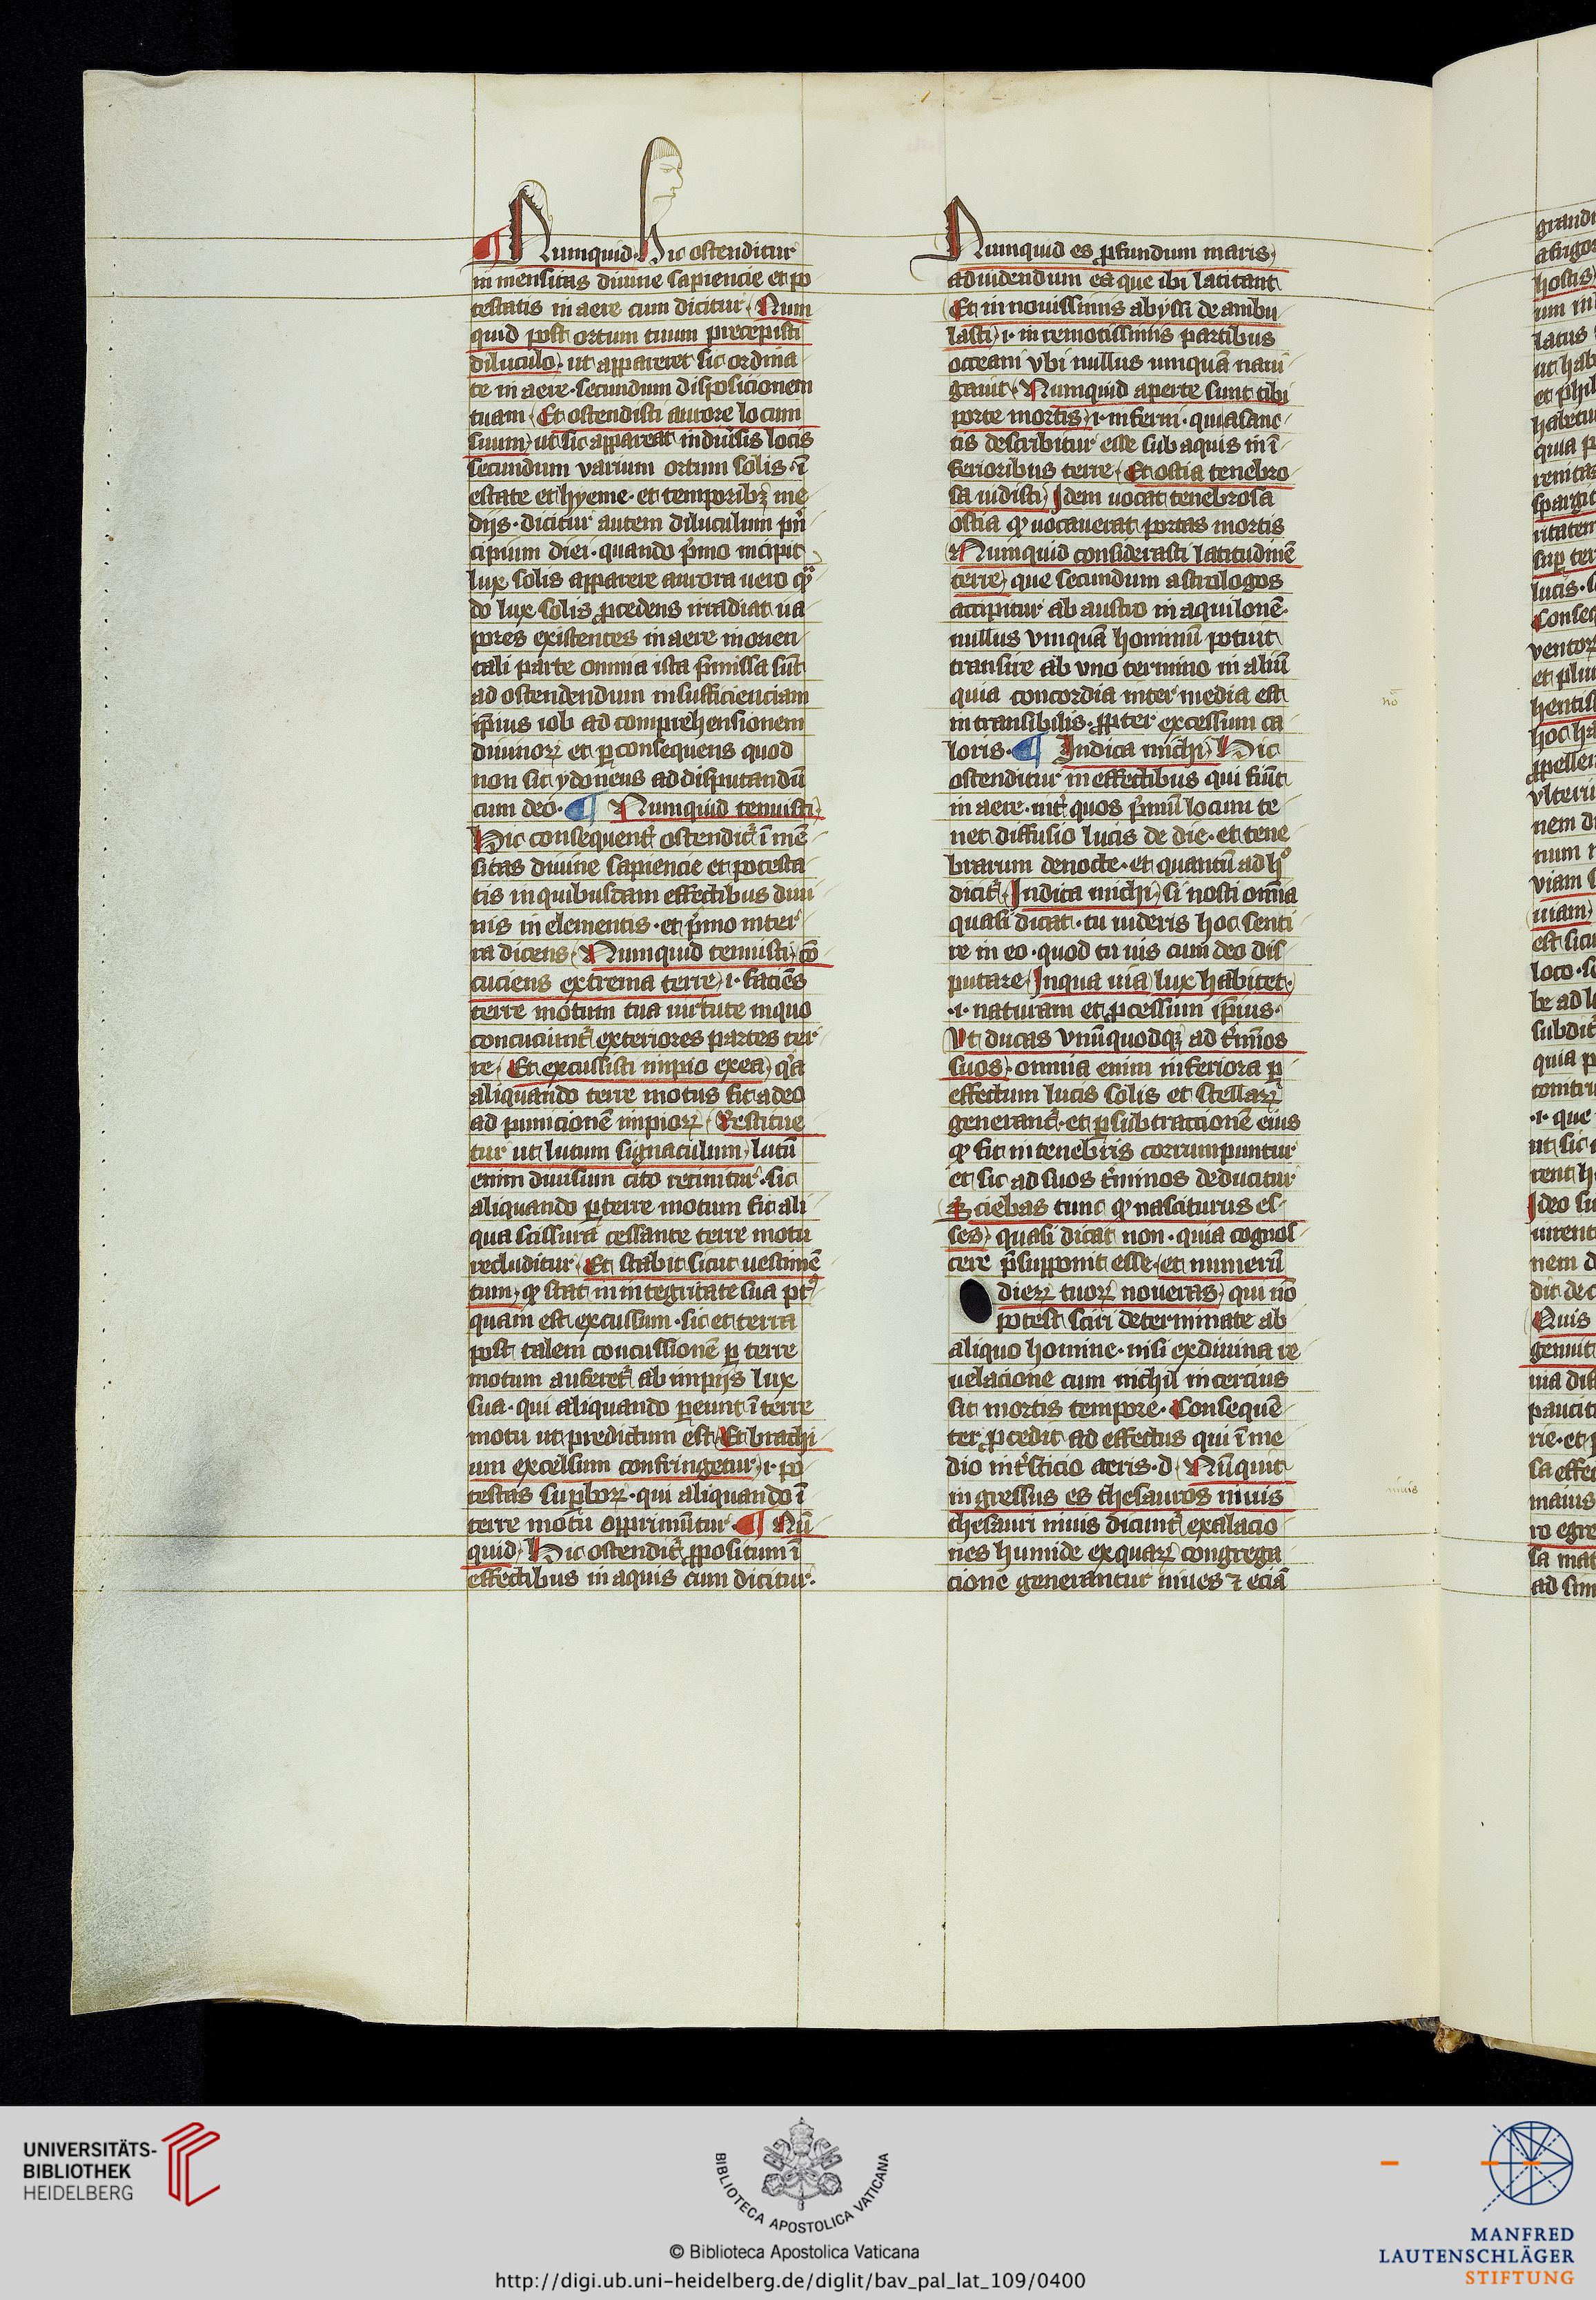 ¶ Numquid. Hic ostenditur
inmensitas diuine sapiencie et po
testatis in aere cum dicitur. Num
quid post ortum tuum precepisti
diluculo. ut appareret sic ordina
te in aere. secundum disposicionem
tuam. Et ostendisti aurore locum
suum. ut sic appareat in diu̾sis locis
secundum varium ortum solis. ī
estate et hyeme. et temporibꝫ me
dijs. dicitur autem diluculum pn̄
cipium diei. quando p̄mo incipit
lux solis apparere aurora uero qn̄
do lux solis ꝓcedens irradiat ua
pores existentes in aere in orien
tali parte omnia ista p̄missa sūt
ad ostendendum insufficienciam
ip̄ius iob ad comprehensionem
diuinoꝝ et ꝑ consequens quod
non sit ydoneus ad disputandū
cum deo. ¶ Numquid tenuisti
Hic consequent̾ ostendit̾ īmē
sitas diuine sapiencie et potesta
tis in quibusdam effectibus diui
nis in elementis. et p̄mo in ter
ra dicens. Numquid tenuisti cō
cuciens extrema terre .i. faciēs
terre motum tua uirtute in quo
concuciunt̾ exteriores partes ter
re. Et excussisti impio ex ea. qꝛ
aliquando terre motus fit adeo
ad punicionē impioꝝ. Restitue
tur ut lutum signaculum. lutū
enim diuisum cito reunitur. sic
aliquando ꝑ terre motum fit ali
qua scissura cessante terre motu
recluditur. Et stabit sicut uestimē
tum. qͦ stat in integritate sua pꝰ
quam est excussum. sic et terra
post talem concussionē ꝑ terre
motum auferet̾ ab impijs lux
sua. qui aliquando ꝑeunt ī terre
motu ut predictum est. Et brachi
um excelsum confringetur .i. po
testas suꝑboꝝ. qui aliquando ī
terre motu opprimūtur. ¶ Nū
quid. Hic ostendit̾ ꝓpositum ī
effectibus in aquis cum dicitur.
Numquid es ꝓfundum maris.
ad uidendum ea que ibi latitant
Et in nouissimis abyssi deambu
lasti .i. in remotissimis partibus
occeani vbi nullus umquā naui
gauit. Numquid aperte sunt tibi
porte mortis .i. inferni. quia sanc
tis describitur esse sub aquis in ī
ferioribus terre. Et ostia tenebro
sa uidisti. Idem uocat tenebrosa
ostia qͦ uocauerat portas mortis
Numquid considerasti latitudinē
terre. que secundum astrologos
accipitur ab austro in aquilonē.
nullus vmquā hominū potuit
transire ab vno termino in aliū
quia concordia inter media est
intransibilis. ꝓpter excessum ca
loris. ¶ Indica michi. Hic
ostenditur in effectibus qui fiūt
in aere. int̾ quos p̄mū locum te
net diffusio lucis de die. et tene
brarum de nocte. et quantū ad hͦ
dicit̾. Indica michi. si nosti omīa
quasi dicat. tu uideris hoc senti
re in eo. quod tu uis cum deo dis
putare. In qua uia lux habitet.
.i. naturam et ꝓcessum ip̄ius.
Vt ducas vnūquodqꝫ ad t̾mīos
suos. omnia enim inferiora ꝑ
effectum lucis solis et stellaꝝ
generant̾. et ꝑ subtractionē eius
qͦ fit in tenebris corrumpuntur
et sic ad suos t̾minos deducitur
Sciebas tunc qͦ nasciturus es
ses. quasi dicat non. quia cognos
cere p̄supponit esse. et numerū
dieꝝ tuoꝝ noueras. qui nō
potest sciri determinate ab
aliquo homine. nisi ex diuina re
uelacione cum nichil incercius
sit mortis tempore. Consequē
ter ꝓcedit ad effectus qui ī me
dio int̾sticio aeris .d. Nūquit
ingressus es thesauros niuis
thesauri niuis dicunt̾ exalacio
nes humide ex quaꝝ congrega
cione generantur niues ⁊ eciā
nō
niuis
UNIVERSITÄTS-
BIBLIOTHEK
HEIDELBERG
BIBLIOTECA APOSTOLICA VATICANA
© Biblioteca Apostolica Vaticana
http://digi.ub.uni-heidelberg.de/diglit/bav_pal_lat_109/0400
MANFRED
LAUTENSCHLÄGER
STIFTUNG